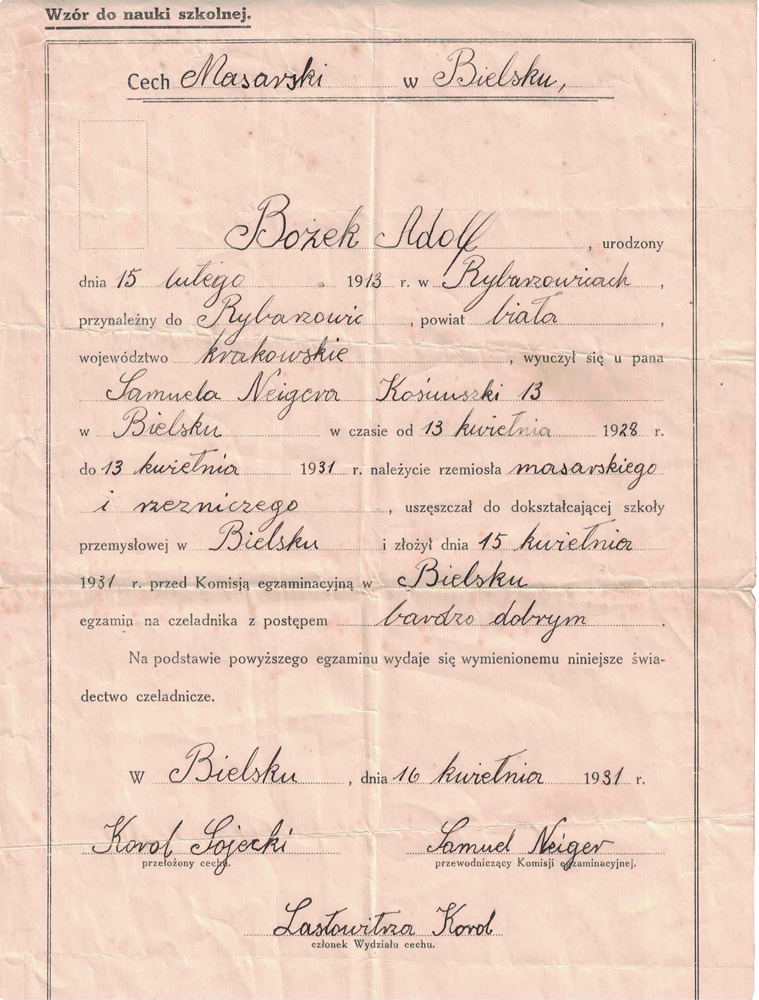 Wzór do nauki szkolnej.
Cech Masarski w Bielsku,
Bożek Adolf, urodzony
dnia 15 lutego 1913 r. w Rybarzowicach,
przynależny do Rybarzowic, powiat biała,
województwo krakowskie, wyuczył się u pana
Samuela Neigera Kościuszki 13
w Bielsku w czasie od 13 kwietnia 1928 r.
do 13 kwietnia 1931 r. należycie rzemiosła masarskiego
i rzezniczego, uszęszczał do dokształcającej szkoły
przemysłowej w Bielsku i złożył dnia 15 kwietnia
1931 r. przed Komisją egzaminacyjną w Bielsku
egzamin na czeladnika z postępem bardzo dobrym.
Na podstawie powyższego egzaminu wydaje się wymienionemu niniejsze świa-
dectwo czeladnicze.
W Bielsku, dnia 16 kwietnia 1931 r.
Karol Sojecki Samuel Neiger
przełożony cechu. przewodniczący Komisji egzaminacyjnej.
Karol
członek Wydziału cechu.